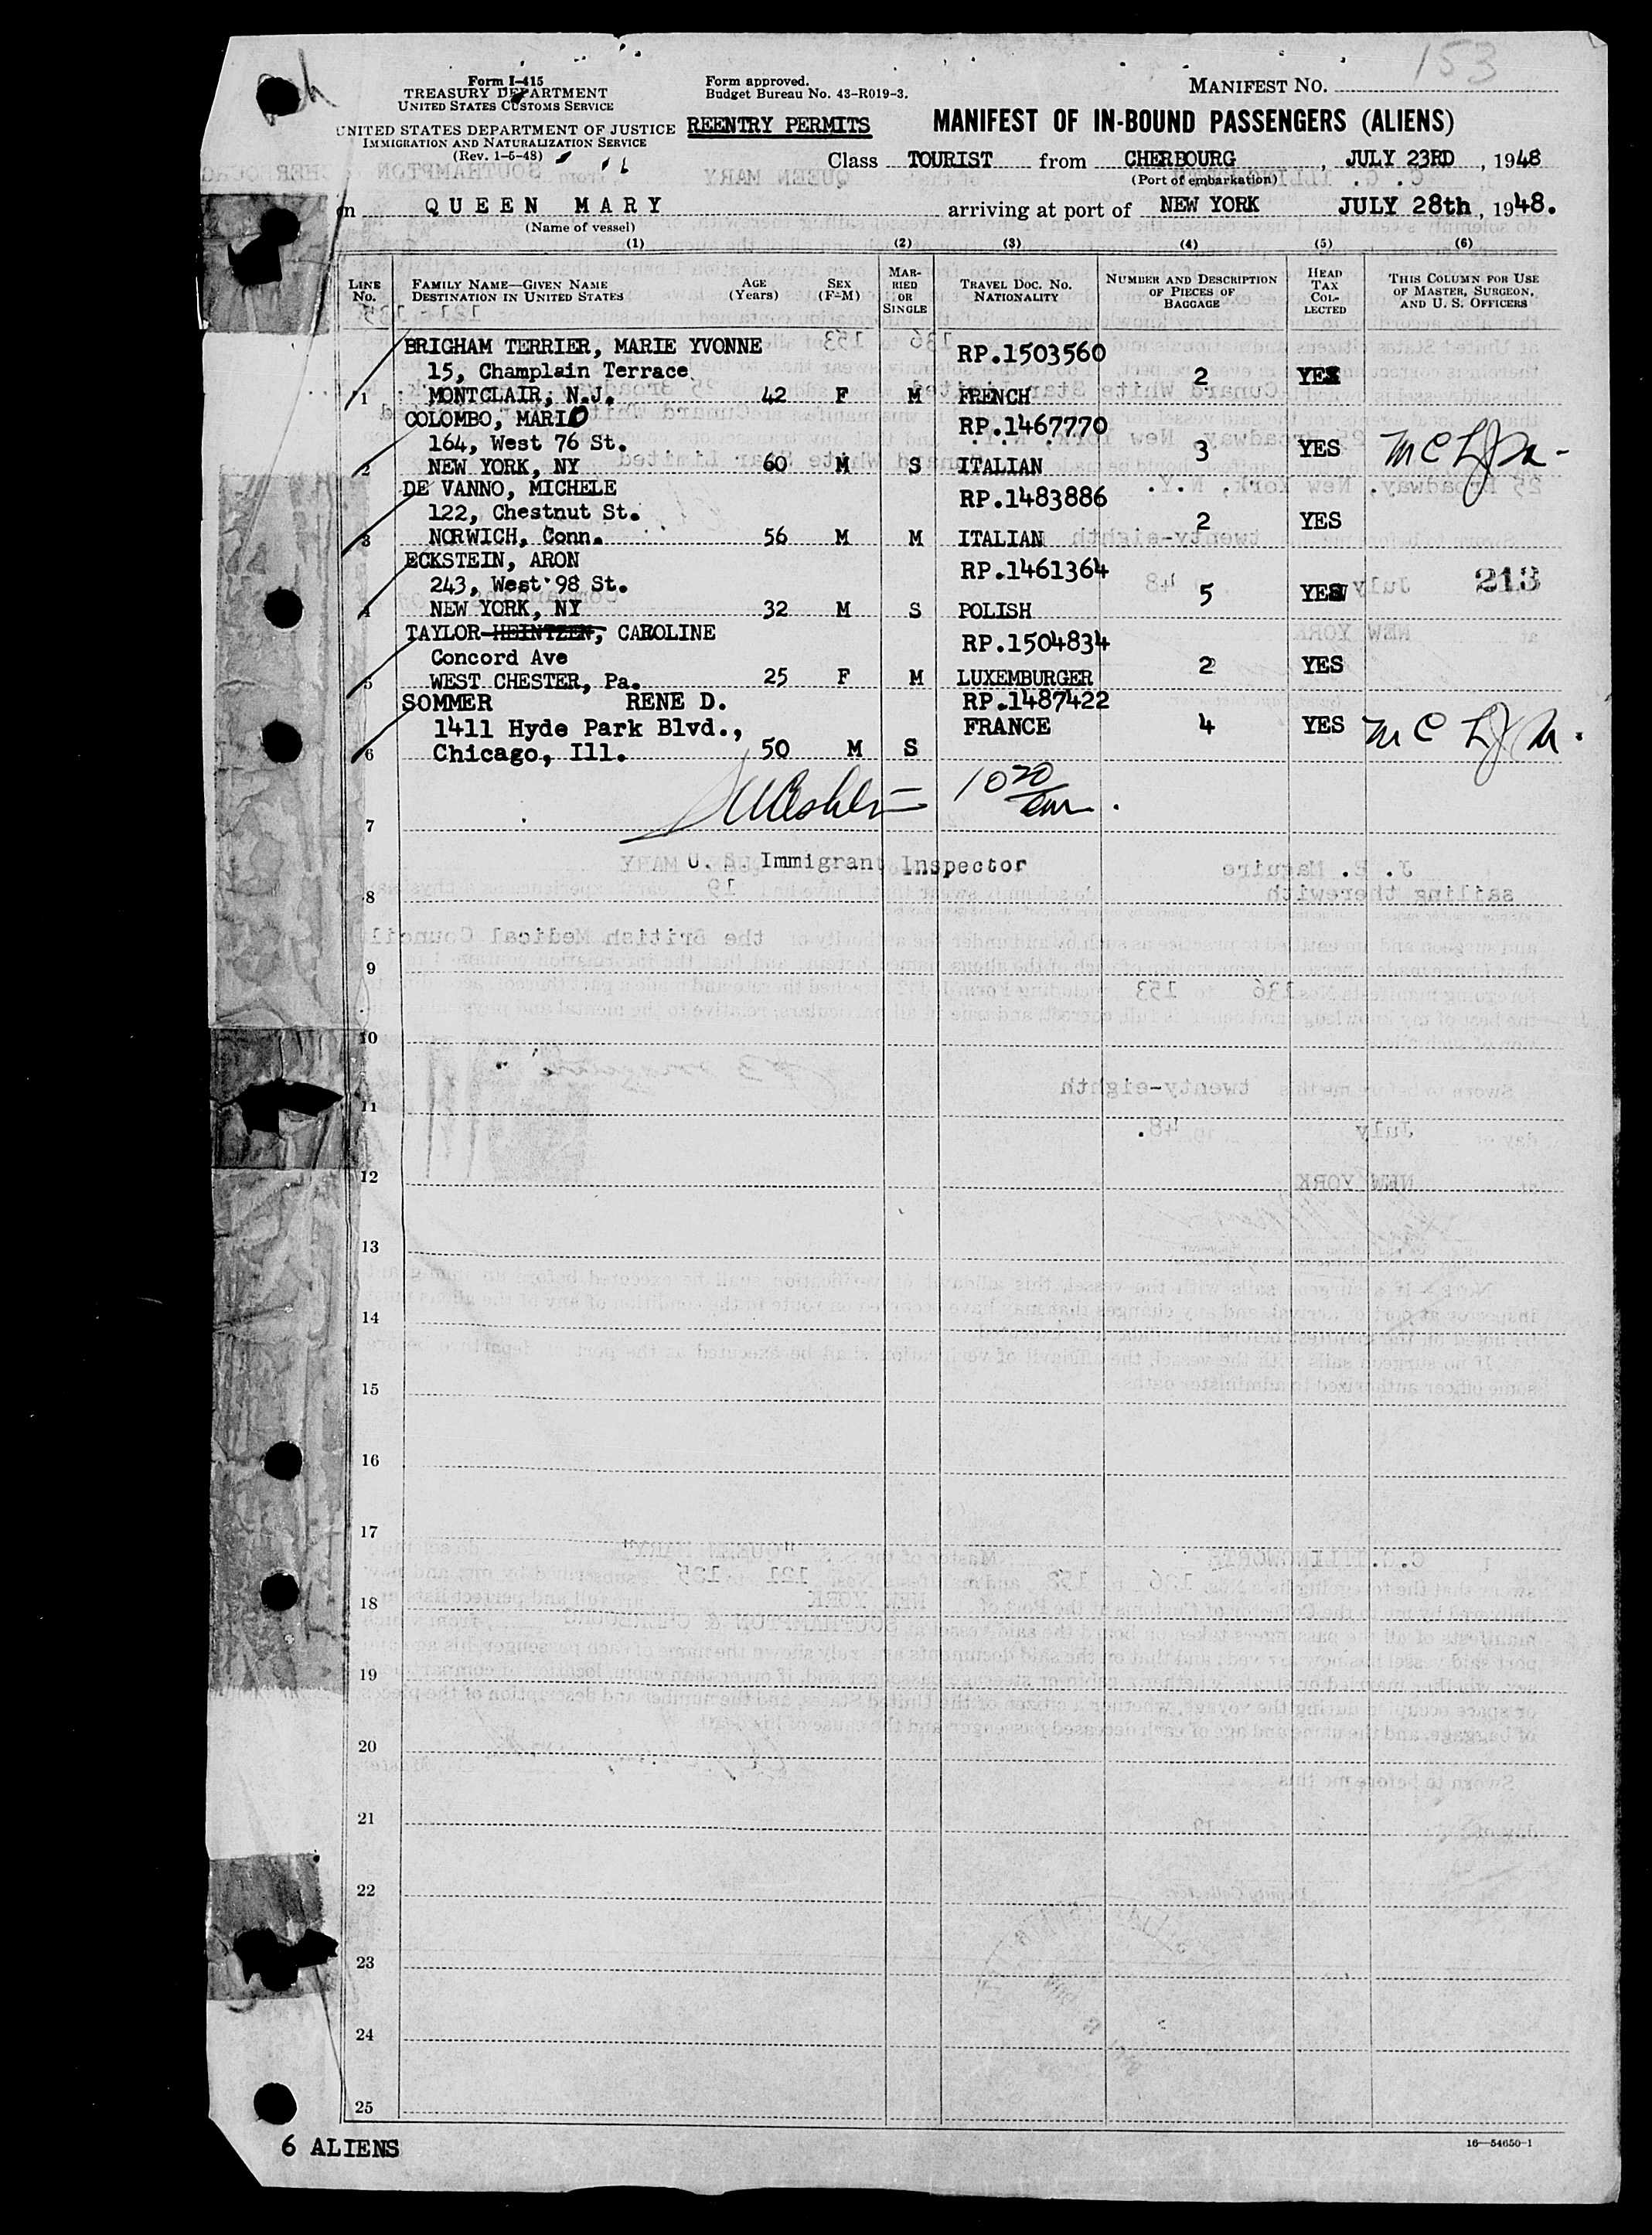 153
Form I-415
TREASURY DEPARTMENT
UNITED STATES CUSTOMS SERVICE
UNITED STATES DEPARTMENT OF JUSTICE
IMMIGRATION AND NATURALIZATION SERVICE
(Rev. 1-5-48)
Form approved.
Budget Bureau No. 43-R019-3.
REENTRY PERMITS
MANIFEST NO.
MANIFEST OF IN-BOUND PASSENGERS (ALIENS)
Class TOURIST from CHERBOURG, JULY 23RD, 1948
(Port of embarkation)
on QUEEN MARY arriving at port of NEW YORK JULY 28th, 1948.
(Name of vessel)
(1) (2) (3) (4) (5) (6)
LINE No.
FAMILY NAME—GIVEN NAME
DESTINATION IN UNITED STATES
AGE (Years)
SEX (F-M)
MARRIED OR SINGLE
TRAVEL DOC. NO.
NATIONALITY
NUMBER AND DESCRIPTION OF PIECES OF BAGGAGE
HEAD TAX COLLECTED
THIS COLUMN FOR USE OF MASTER, SURGEON, AND U. S. OFFICERS
BRIGHAM TERRIER, MARIE YVONNE RP.1503560
15, Champlain Terrace 2 YES
1 MONTCLAIR, N.J. 42 F M FRENCH
COLOMBO, MARIO RP.1467770
164, West 76 St. 3 YES
2 NEW YORK, NY 60 M S ITALIAN
DE VANNO, MICHELE RP.1483886
122, Chestnut St. 2 YES
3 NORWICH, Conn. 56 M M ITALIAN
ECKSTEIN, ARON RP.1461364
243, West 98 St. 5 YES 213
4 NEW YORK, NY 32 M S POLISH
TAYLOR HEINTZEN, CAROLINE RP.1504834
Concord Ave 2 YES
5 WEST CHESTER, Pa. 25 F M LUXEMBURGER
SOMMER RENE D. RP.1487422
1411 Hyde Park Blvd., FRANCE 4 YES
6 Chicago, Ill. 50 M S
10 20
7
U. S. Immigrant Inspector
8
9
10
11
12
13
14
15
16
17
18
19
20
21
22
23
24
25
6 ALIENS
16—54650-1